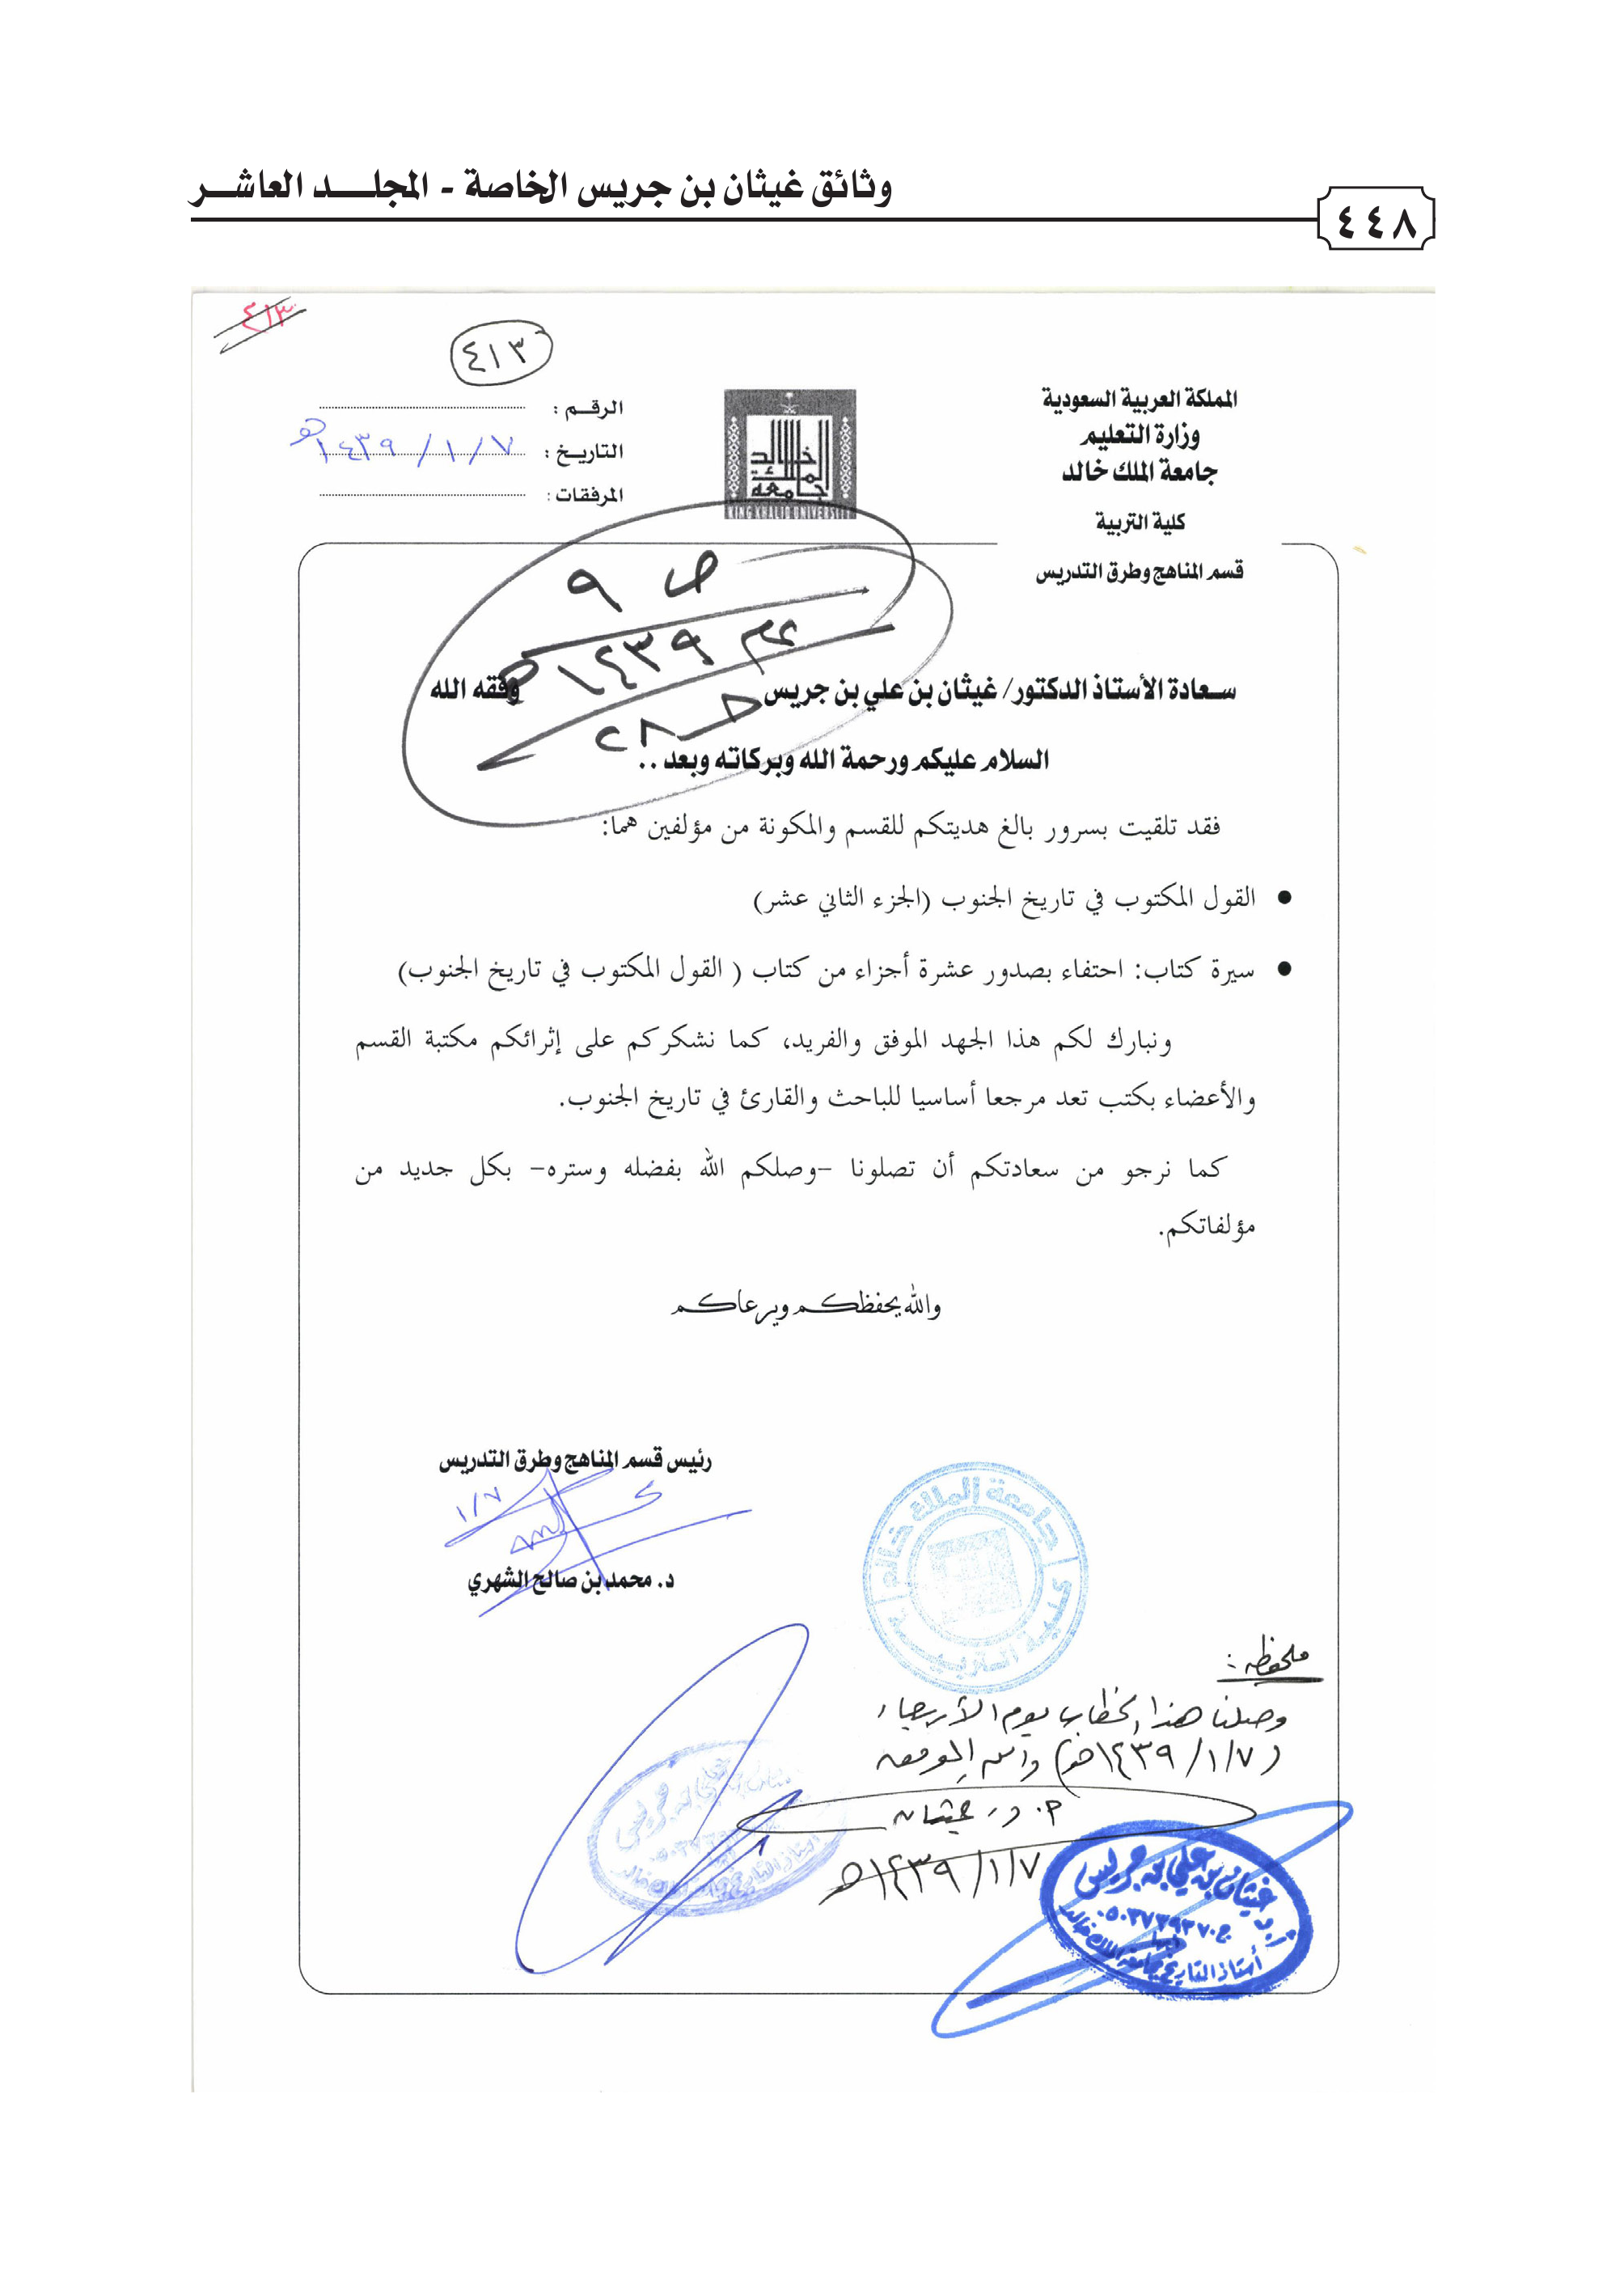 وثائق غيثان بن جريس الخاصة - المجلد العاشر
٤٤٨
٤١٣
٤١٣
المملكة العربية السعودية
وزارة التعليم
جامعة الملك خالد
كلية التربية
قسم المناهج وطرق التدريس
جامعة الملك خالد
KING KHALID UNIVERSITY
الرقم :
التاريخ : ١٤٣٩/١/٧هـ
المرفقات :
ص ٩
عام ١٤٣٩هـ
سعادة الأستاذ الدكتور/ غيثان بن علي بن جريس وفقه الله
السلام عليكم ورحمة الله وبركاته وبعد ..
فقد تلقيت بسرور بالغ هديتكم للقسم والمكونة من مؤلفين هما:
● القول المكتوب في تاريخ الجنوب (الجزء الثاني عشر)
● سيرة كتاب: احتفاء بصدور عشرة أجزاء من كتاب ( القول المكتوب في تاريخ الجنوب)
ونبارك لكم هذا الجهد الموفق والفريد، كما نشكركم على إثرائكم مكتبة القسم
والأعضاء بكتب تعد مرجعا أساسيا للباحث والقارئ في تاريخ الجنوب.
كما نرجو من سعادتكم أن تصلونا -وصلكم الله بفضله وستره- بكل جديد من
مؤلفاتكم.
والله يحفظكم ويرعاكم
رئيس قسم المناهج وطرق التدريس
١/٧
د. محمد بن صالح الشهري
جامعة الملك خالد
كلية التربية
ملحوظة :
وصلنا هذا الخطاب يوم الأربعاء
(١٤٣٩/١/٧هـ) والله الموفق
أ. د. غيثان
١٤٣٩/١/٧هـ
غيثان بن علي بن جريس
أستاذ التاريخ بجامعة الملك خالد